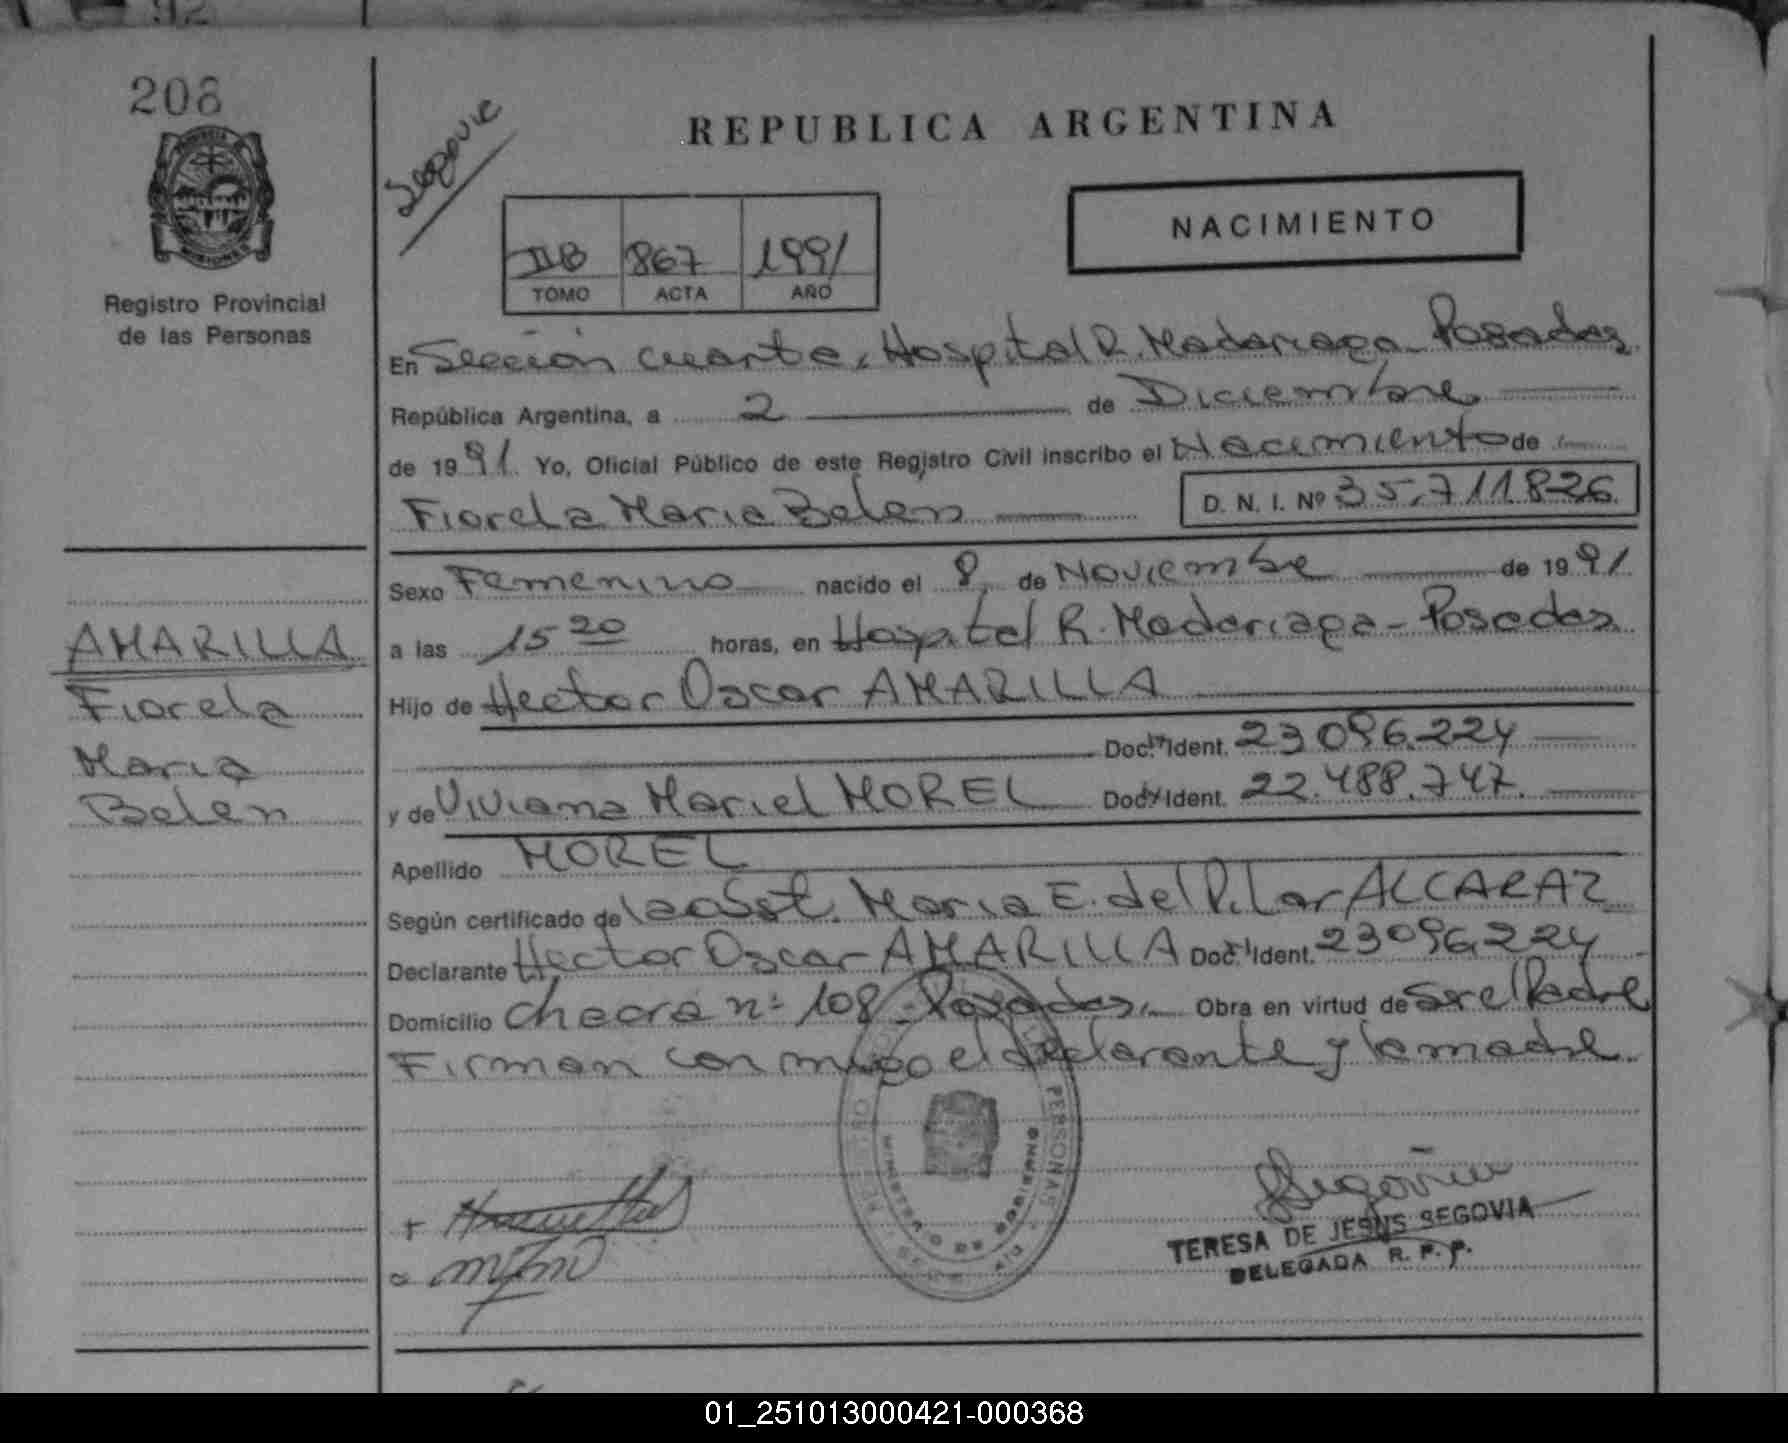 92
208
Segovia
REPUBLICA ARGENTINA
NACIMIENTO
IIB 867 1991
TOMO ACTA AÑO
Registro Provincial
de las Personas
En Sección cuarta, Hospital R. Madariaga Posadas
República Argentina, a 2 de Diciembre
de 1991. Yo, Oficial Público de este Registro Civil inscribo el Nacimiento de
Fiorela Maria Belen D. N. I. Nº 35.711826
Sexo Femenino nacido el 8 de Noviembre de 1991
a las 15 20 horas, en Hospital R. Madariaga - Posadas
Hijo de Hector Oscar AMARILLA
Doc. Ident. 23096.224
y de Viviana Mariel MOREL Doc. Ident. 22.488.747.
Apellido MOREL
Según certificado de la obst. Maria E. del Pilar ALCARAZ
Declarante Hector Oscar AMARILLA Doc. Ident. 23096224
Domicilio chacra nº 108 - Posadas. Obra en virtud de ser el Padre
Firman con migo el declarante y la madre
AMARILLA
Fiorela
Maria
Belen
PERSONAS
MINISTERIO DE GOBIERNO
Segovia
TERESA DE JESUS SEGOVIA
DELEGADA R. P. P.
01_251013000421-000368